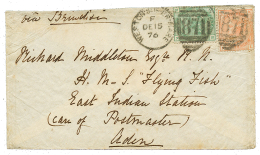 via Brindisi
F
DE 15
76
B71
B71
Richard Middleton Esqre R.N.
H.M.S. "Flying Fish"
East Indian Station
(care of Postmaster)
Aden